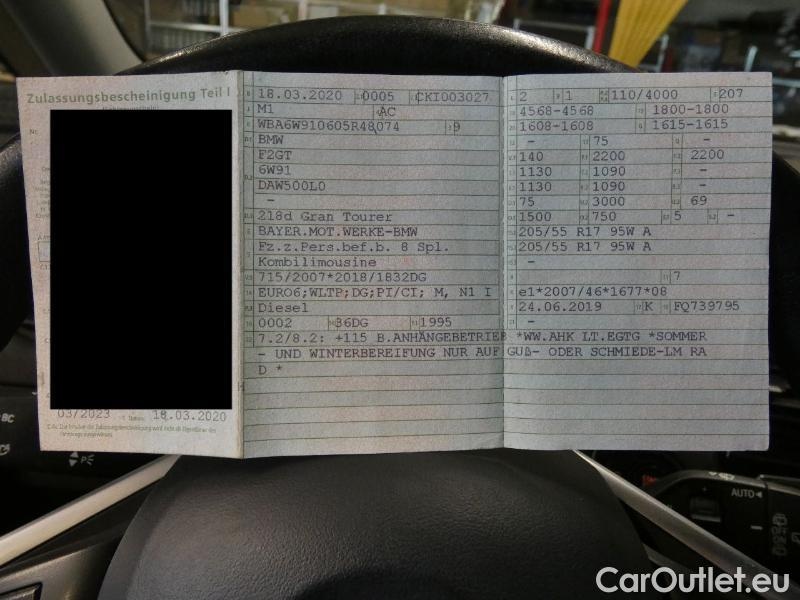 Zulassungsbescheinigung Teil I
03/2023 18.03.2020
18.03.2020 0005 CKI003027
M1 AC
WBA6W910605R48074 9
BMW
F2GT
6W91
DAW500L0
-
218d Gran Tourer
BAYER.MOT.WERKE-BMW
Fz.z.Pers.bef.b. 8 Spl.
Kombilimousine
715/2007*2018/1832DG
EURO6;WLTP;DG;PI/CI; M, N1 I
Diesel
0002 36DG 1995
7.2/8.2: +115 B.ANHÄNGEBETRIEB *WW.AHK LT.EGTG *SOMMER
- UND WINTERBEREIFUNG NUR AUF GUß- ODER SCHMIEDE-LM RA
D *
2 1 110/4000 207
4568-4568 1800-1800
1608-1608 1615-1615
- 75 -
140 2200 2200
1130 1090 -
1130 1090 -
75 3000 69
1500 750 5 -
205/55 R17 95W A
205/55 R17 95W A
-
7
e1*2007/46*1677*08
24.06.2019 K FQ739795
-
AUTO
CarOutlet.eu